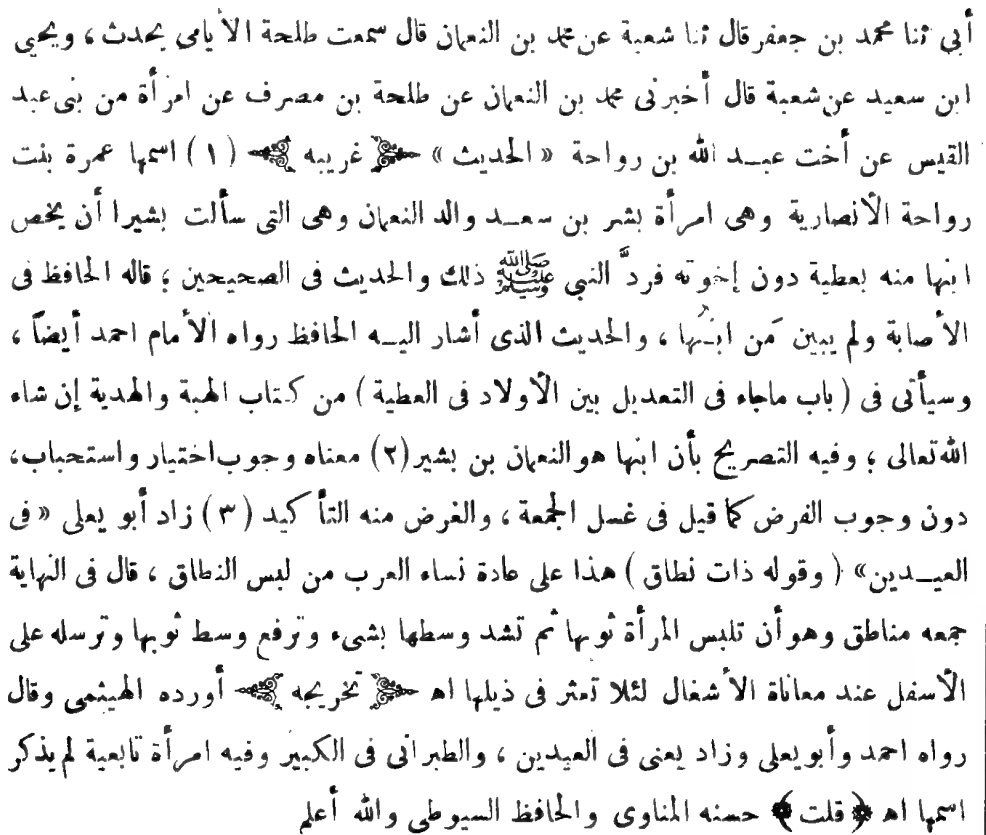 أبي ثنا محمد بن جعفر قال ثنا شعبة عن محمد بن النعمان قال سمعت طلحة الأيامى يحدث ، ويحيى
ابن سعيد عن شعبة قال أخبرنى محمد بن النعمان عن طلحة بن مصرف عن امرأة من بنى عبد
القيس عن أخت عبد الله بن رواحة « الحديث » ﴿ غريبه ﴾ (١) اسمها عمرة بنت
رواحة الأنصارية وهى امرأة بشر بن سعد والد النعمان وهى التى سألت بشيرا أن يخص
ابنها منه بعطية دون إخوته فردَّ النبي ﷺ ذلك والحديث فى الصحيحين ؛ قاله الحافظ فى
الأصابة ولم يبين مَن ابنُها ، والحديث الذى أشار اليه الحافظ رواه الأمام احمد أيضاً ،
وسيأتى فى ( باب ماجاء فى التعديل بين الأولاد فى العطية ) من كتاب الهبة والهدية إن شاء
الله تعالى ؛ وفيه التصريح بأن ابنها هو النعمان بن بشير (٢) معناه وجوب اختيار واستحباب،
دون وجوب الفرض كما قيل فى غسل الجمعة ، والغرض منه التأكيد (٣) زاد أبو يعلى « فى
العيدين» ( وقوله ذات نطاق ) هذا على عادة نساء العرب من لبس النطاق ، قال فى النهاية
جمعه مناطق وهو أن تلبس المرأة ثوبها ثم تشد وسطها بشىء وترفع وسط ثوبها وترسله على
الأسفل عند معاناة الأشغال لئلا تعثر فى ذيلها اه ﴿ تخريجه ﴾ أورده الهيثمى وقال
رواه احمد وأبو يعلى وزاد يعنى فى العيدين ، والطبرانى فى الكبير وفيه امرأة تابعية لم يذكر
اسمها اه ﴿ قلت ﴾ حسنه المناوى والحافظ السيوطى والله أعلم